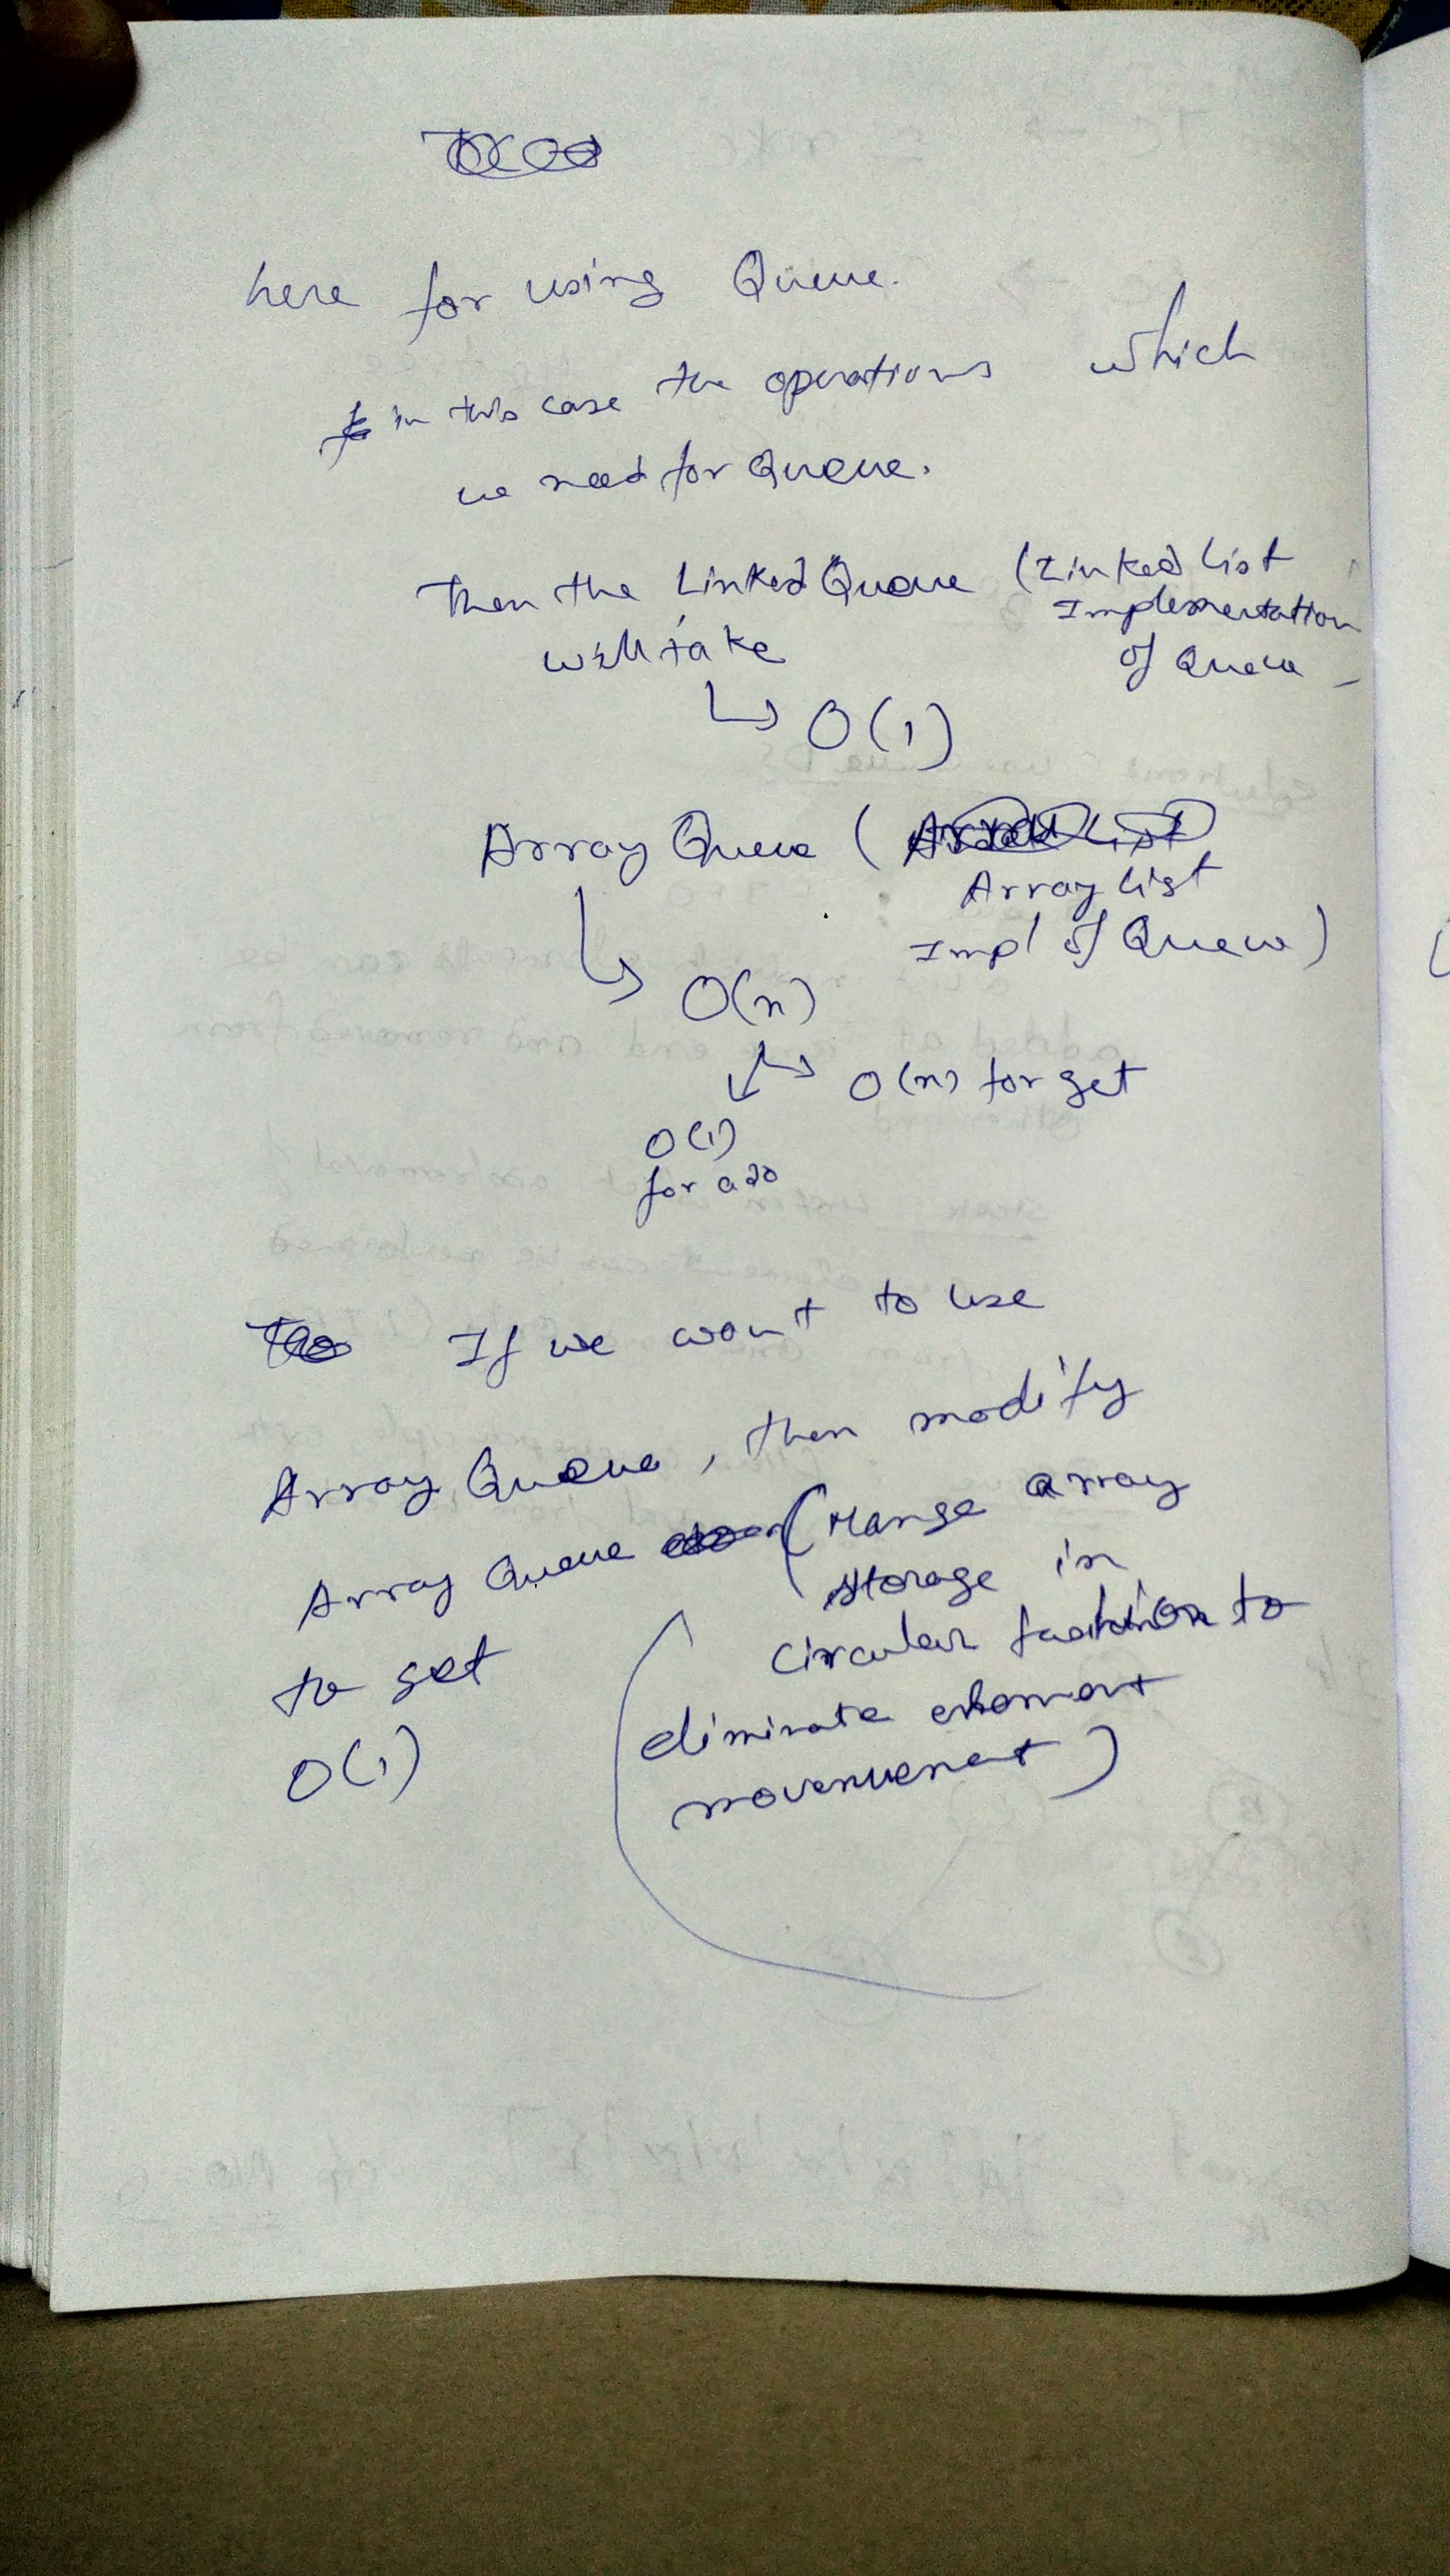 here for using Queue.
in this case the operations which
we need for Queue.
Then the Linked Queue (Linked List
Implementation
will take
of Queue
↳ O(1)
Array Queue (
Array List
Impl of Queue)
O(n)
O(n) for get
O(1)
for add
If we want to use
Array Queue, then modify
Array Queue (Mange array
storage in
circular fashion to
to get
eliminate element
O(1)
movement)